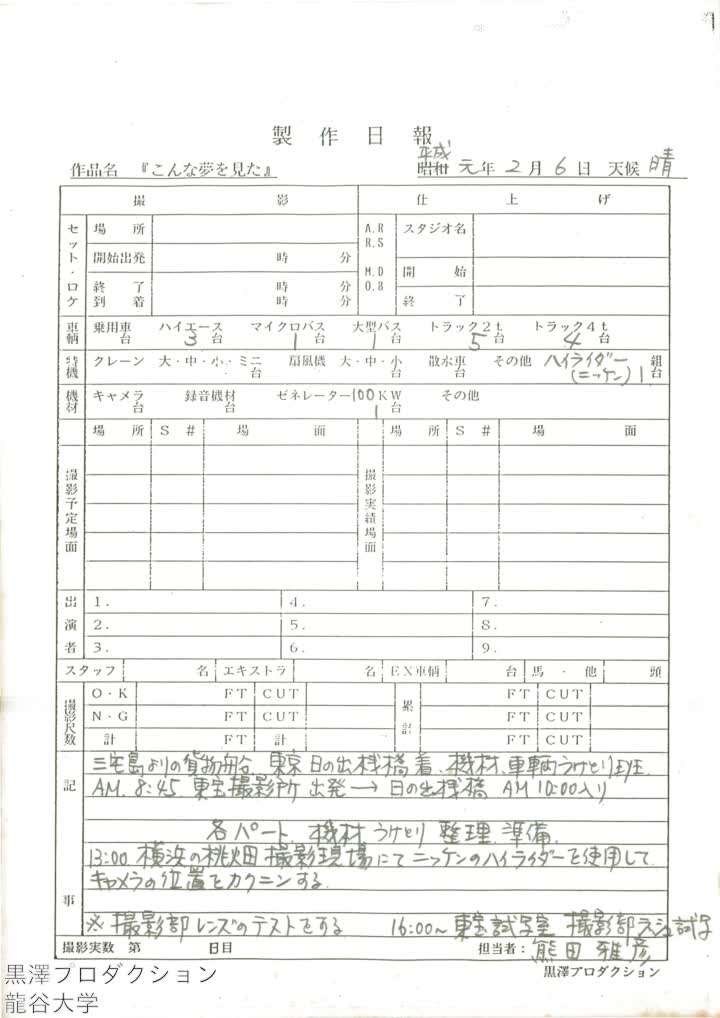 製作日報
作品名 『こんな夢を見た』 昭和 平成 元年 2月 6日 天候 晴
撮影 仕上げ
セット・ロケ 場所 A.R R.S スタジオ名
開始出発 時 分 M.D O.B 開始
終了 時 分 終了
到着 時 分
車輌 乗用車 台 ハイエース 3台 マイクロバス 1台 大型バス 1台 トラック2t 5台 トラック4t 4台
特機 クレーン 大・中・小・ミニ 台 扇風機 大・中・小 台 散水車 台 その他 ハイライダー (ニッケン) 1 組台
機材 キャメラ 台 録音機材 台 ゼネレーター100KW 1台 その他
場所 S# 場面 場所 S# 場面
撮影予定場面 撮影実績場面
出演者 1. 4. 7.
2. 5. 8.
3. 6. 9.
スタッフ 名 エキストラ 名 EX車輌 台 馬・他 頭
撮影尺数 O・K FT CUT 累計 FT CUT
N・G FT CUT FT CUT
計 FT 計 FT CUT
記事
三宅島よりの貨物船 東京日の出桟橋着、機材、車輌うけとり班
AM. 8:45 東宝撮影所 出発→日の出桟橋 AM 10:00入り
各パート、機材うけとり 整理、準備.
13:00 横浜の桃畑撮影現場にてニッケンのハイライダーを使用して
キャメラの位置をカクニンする.
※撮影部レンズのテストをする 16:00~東宝試写室 撮影部 試写
撮影実数 第 日目 担当者: 熊田雅彦
黒澤プロダクション
黒澤プロダクション
龍谷大学